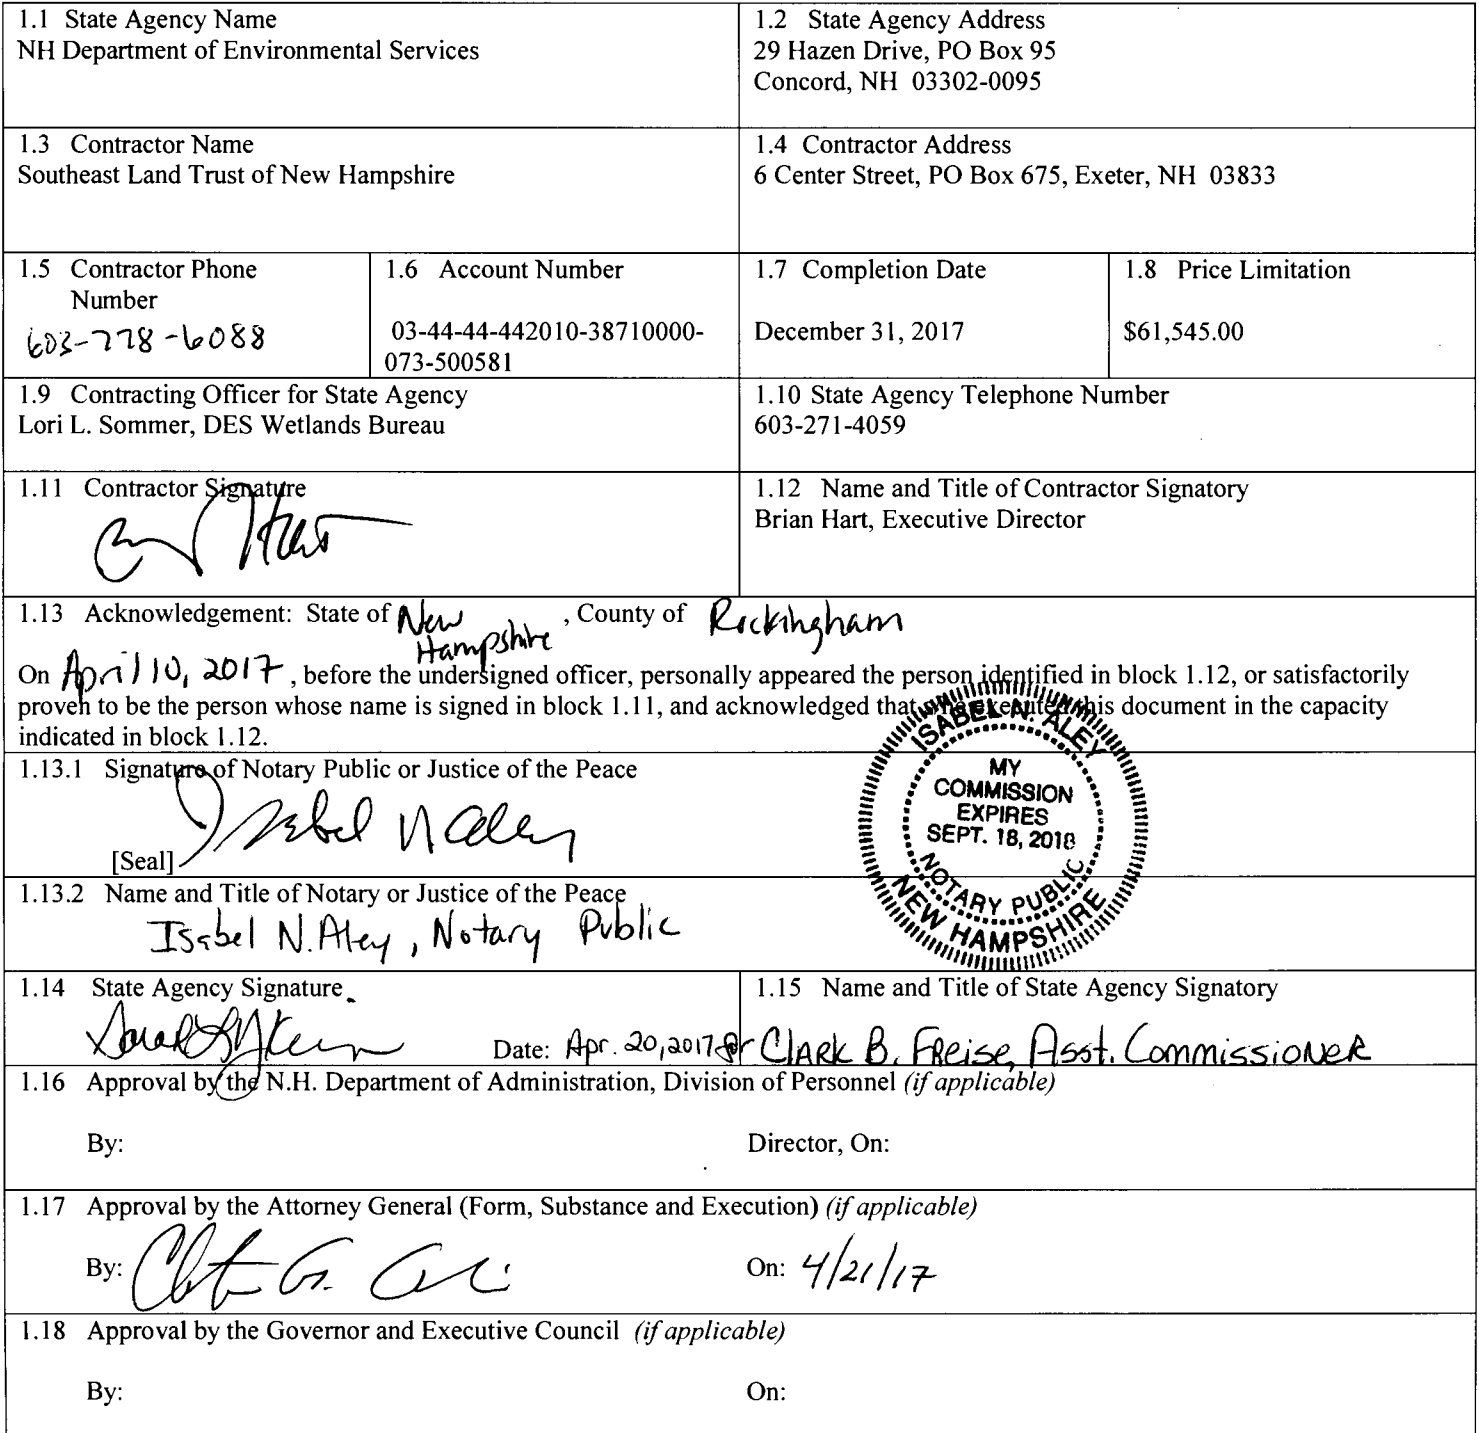 1.1 State Agency Name
NH Department of Environmental Services
1.2 State Agency Address
29 Hazen Drive, PO Box 95
Concord, NH 03302-0095
1.3 Contractor Name
Southeast Land Trust of New Hampshire
1.4 Contractor Address
6 Center Street, PO Box 675, Exeter, NH 03833
1.5 Contractor Phone
Number
603-778-6088
1.6 Account Number
03-44-44-442010-38710000-
073-500581
1.7 Completion Date
December 31, 2017
1.8 Price Limitation
$61,545.00
1.9 Contracting Officer for State Agency
Lori L. Sommer, DES Wetlands Bureau
1.10 State Agency Telephone Number
603-271-4059
1.11 Contractor Signature
1.12 Name and Title of Contractor Signatory
Brian Hart, Executive Director
1.13 Acknowledgement: State of New Hampshire, County of Rockingham
On April 10, 2017, before the undersigned officer, personally appeared the person identified in block 1.12, or satisfactorily
proven to be the person whose name is signed in block 1.11, and acknowledged that executed this document in the capacity
indicated in block 1.12.
ISABEL N. ALEY
MY
COMMISSION
EXPIRES
SEPT. 18, 2018
NOTARY PUBLIC
NEW HAMPSHIRE
1.13.1 Signature of Notary Public or Justice of the Peace
Isabel N Aley
[Seal]
1.13.2 Name and Title of Notary or Justice of the Peace
Isabel N. Aley, Notary Public
1.14 State Agency Signature
Date: Apr. 20, 2017
1.15 Name and Title of State Agency Signatory
for Clark B. Freise, Asst. Commissioner
1.16 Approval by the N.H. Department of Administration, Division of Personnel (if applicable)
By:
Director, On:
1.17 Approval by the Attorney General (Form, Substance and Execution) (if applicable)
By:
On: 4/21/17
1.18 Approval by the Governor and Executive Council (if applicable)
By:
On: